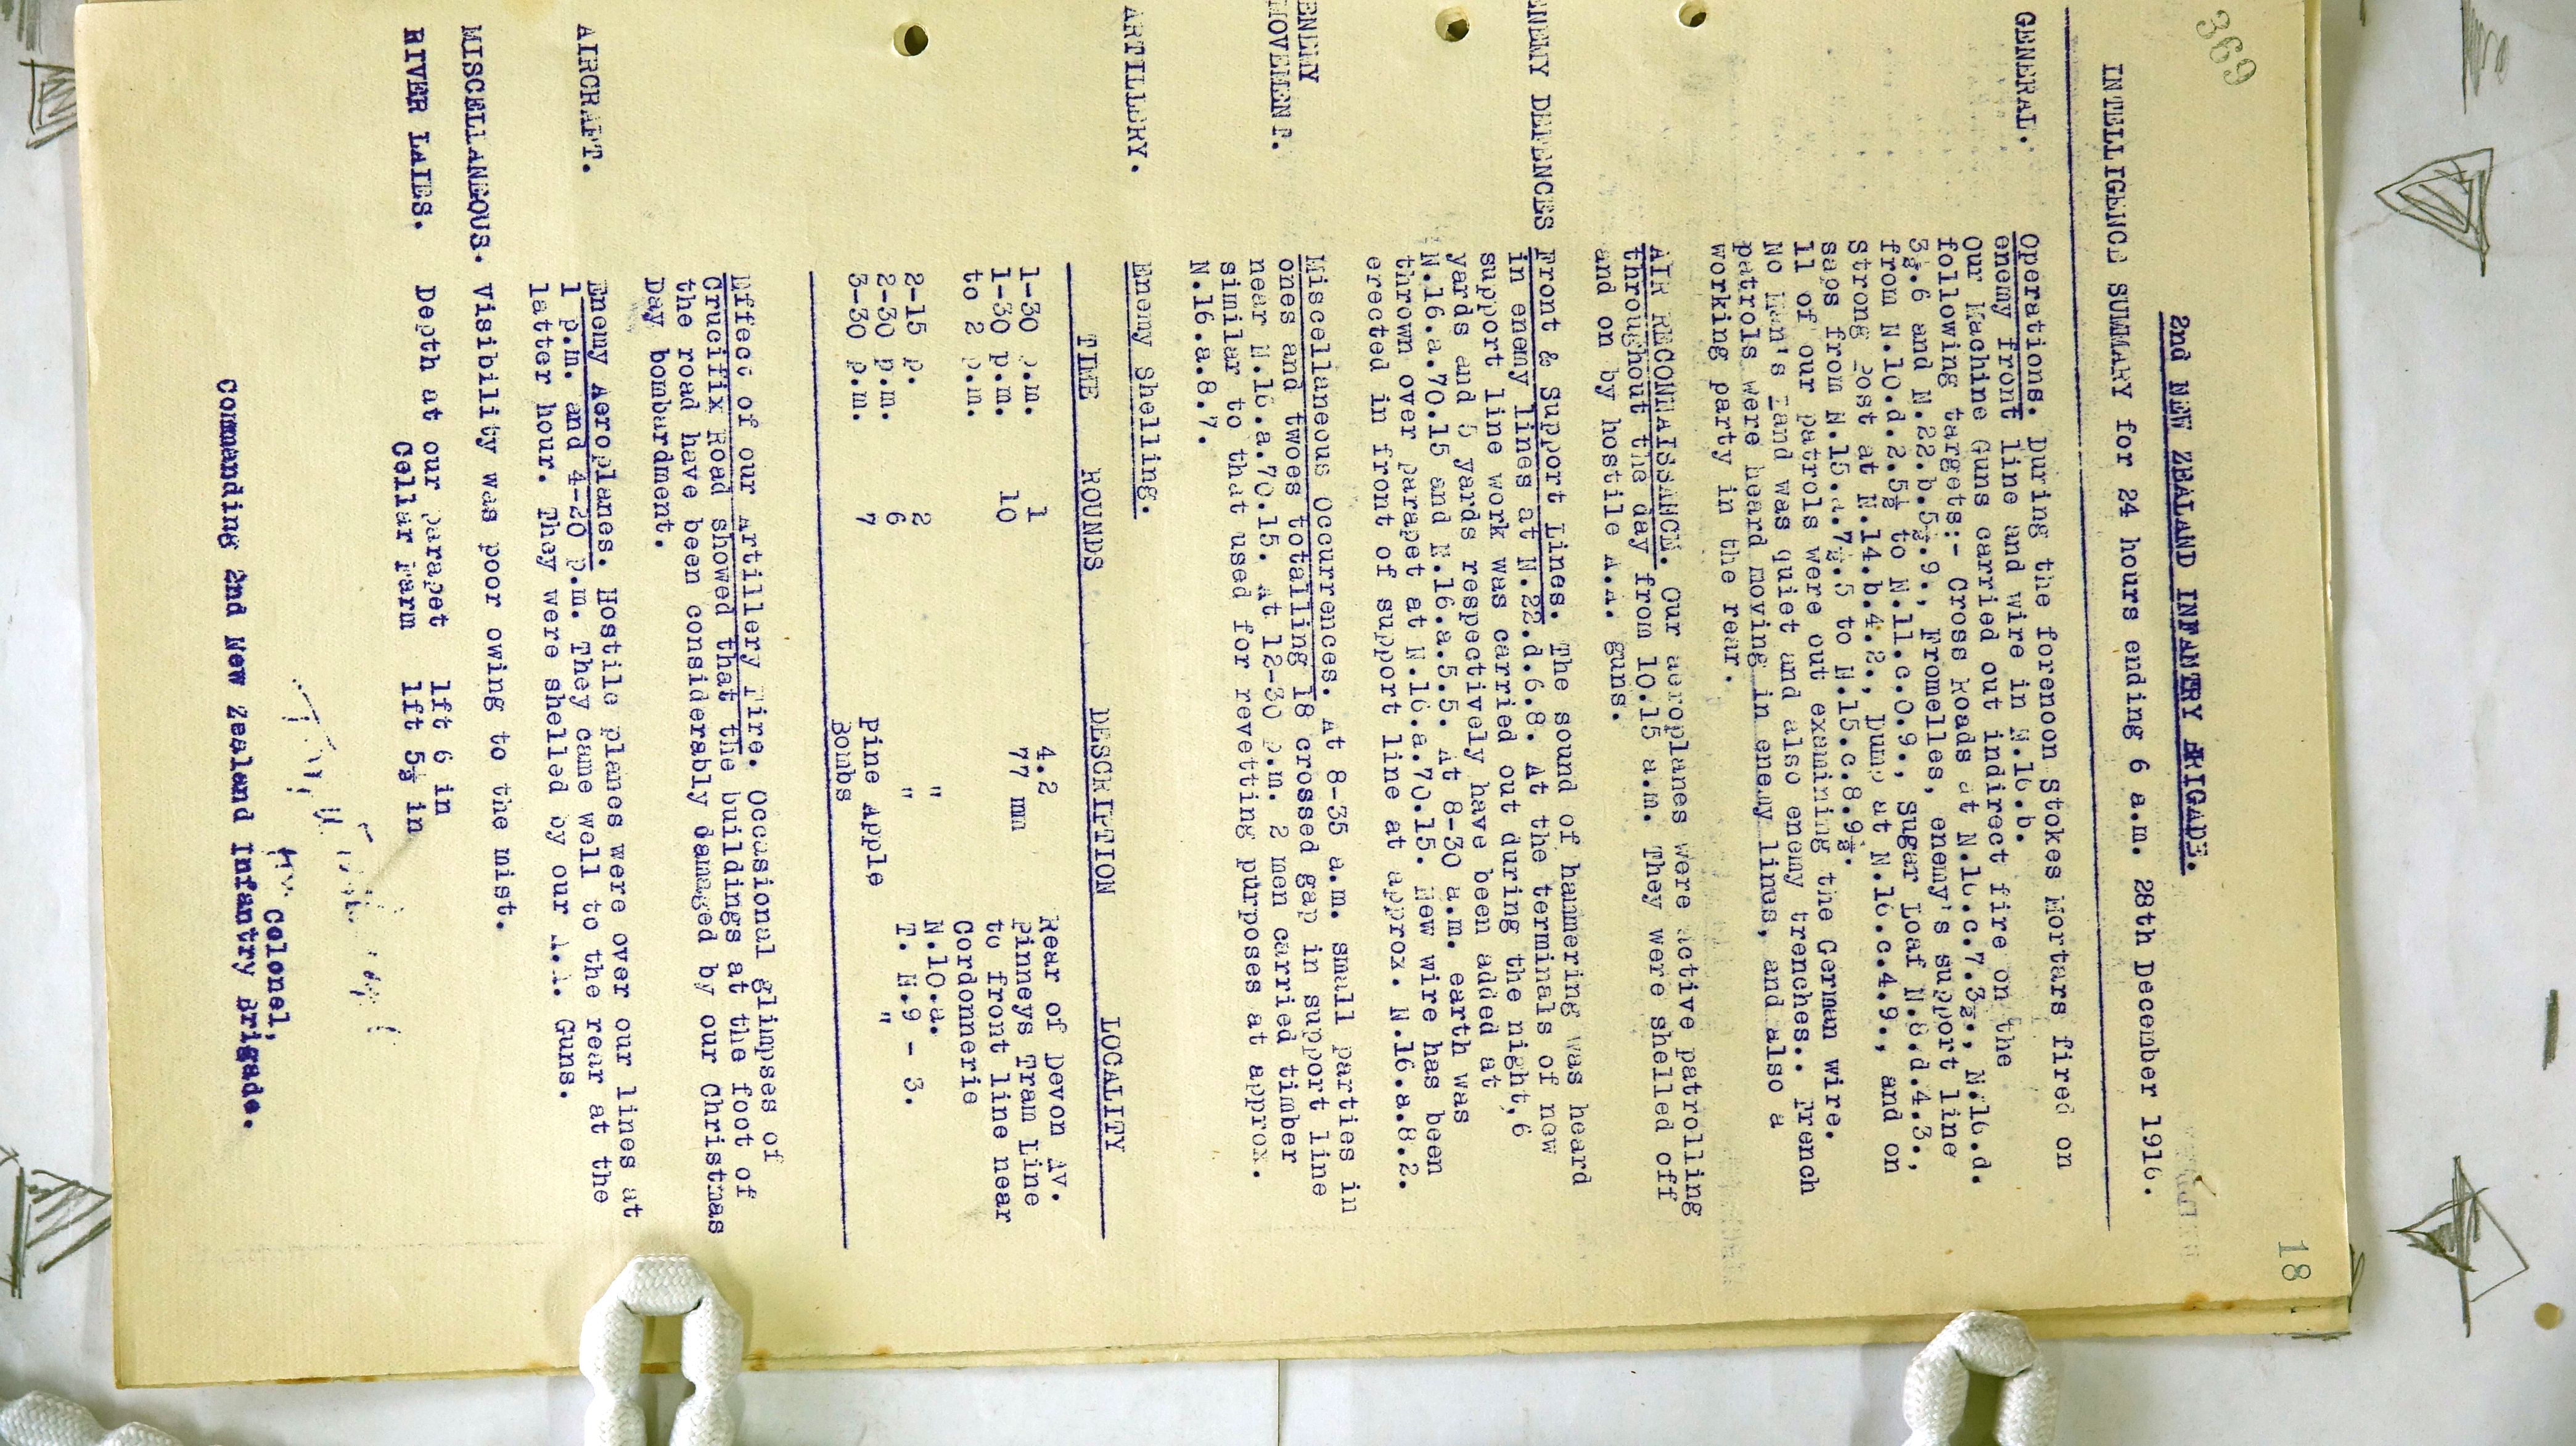 369
18
2nd NEW ZEALAND INFANTRY BRIGADE.
INTELLIGENCE SUMMARY for 24 hours ending 6 a.m. 28th December 1916.
GENERAL. Operations. During the forenoon Stokes Mortars fired on
enemy front line and wire in N.16.b.
Our Machine Guns carried out indirect fire on the
following targets:- Cross Roads at N.16.c.7.3½., N.16.d.
3½.6 and N.22.b.5½.9., Fromelles, enemy's support line
from N.10.d.2.5½ to N.11.c.0.9., Sugar Loaf N.8.d.4.3.,
Strong Post at N.14.b.4.2., Dump at N.16.c.4.9., and on
saps from N.15.a.7½.5 to N.15.c.8.9½.
11 of our patrols were out examining the German wire.
No Man's Land was quiet and also enemy trenches.. Trench
patrols were heard moving in enemy lines, and also a
working party in the rear.
AIR RECONNAISSANCE. Our aeroplanes were active patrolling
throughout the day from 10.15 a.m. They were shelled off
and on by hostile A.A. guns.
ENEMY DEFENCES Front & Support Lines. The sound of hammering was heard
in enemy lines at N.22.d.6.8. At the terminals of new
support line work was carried out during the night, 6
yards and 5 yards respectively have been added at
N.16.a.70.15 and N.16.a.5.5. At 8-30 a.m. earth was
thrown over parapet at N.16.a.70.15. New wire has been
erected in front of support line at approx. N.16.a.8.2.
ENEMY
MOVEMENT. Miscellaneous Occurrences. At 8-35 a.m. small parties in
ones and twoes totalling 18 crossed gap in support line
near N.16.a.70.15. At 12-30 p.m. 2 men carried timber
similar to that used for revetting purposes at approx.
N.16.a.8.7.
ARTILLERY. Enemy Shelling.
TIME ROUNDS DESCRIPTION LOCALITY
1-30 p.m. 1 4.2 Rear of Devon Av.
1-30 p.m. 10 77 mm Pinneys Tram Line
to 2 p.m. to front line near
Cordonnerie
2-15 p. 2 " N.10.a.
2-30 p.m. 6 " T. N.9 - 3.
3-30 p.m. 7 Pine Apple "
Bombs
Effect of our Artillery Fire. Occasional glimpses of
Crucifix Road showed that the buildings at the foot of
the road have been considerably damaged by our Christmas
Day bombardment.
AIRCRAFT. Enemy Aeroplanes. Hostile planes were over our lines at
1 p.m. and 4-20 p.m. They came well to the rear at the
latter hour. They were shelled by our A.A. Guns.
MISCELLANEOUS. Visibility was poor owing to the mist.
RIVER LAIES. Depth at our parapet 1ft 6 in
Cellar Farm 1ft 5½ in
Colonel,
Commanding 2nd New Zealand Infantry Brigade.